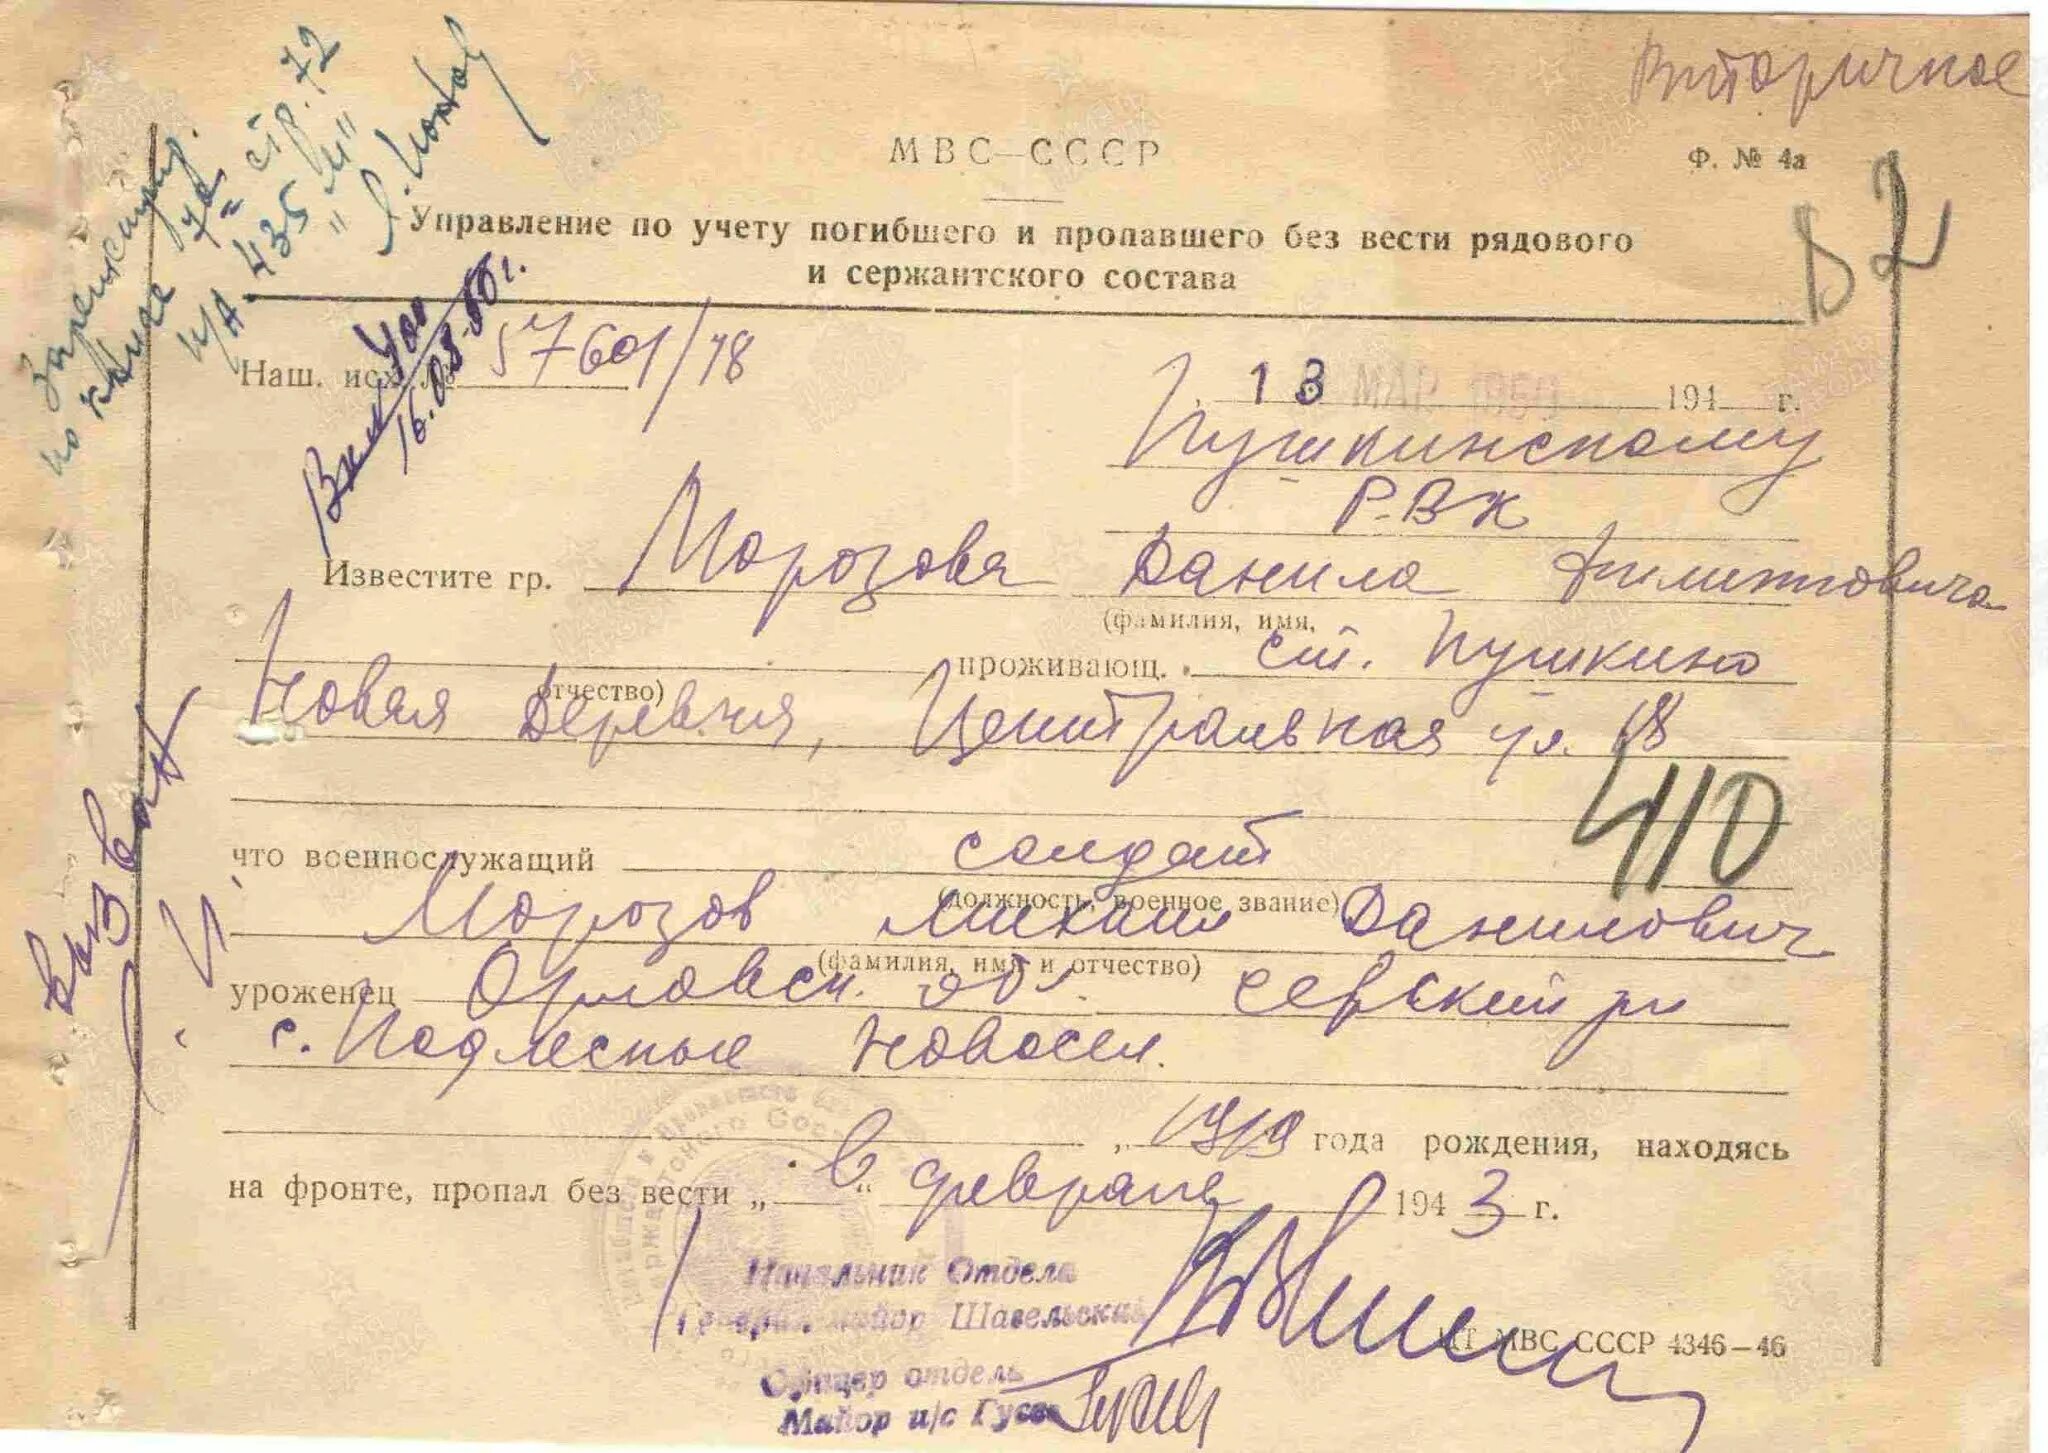 Вторичное
МВС–СССР
Ф. № 4а
Управление по учету погибшего и пропавшего без вести рядового
и сержантского состава
по книге
стр. 72
н/А 435 "М"
16.03.50г.
Наш. исх. № 57601/78
13 МАР 1950 194 г.
Пушкинскому
РВК
Известите гр. Морозова Данила
(фамилия, имя,
проживающ. ст. Пушкино
отчество)
Новая Деревня, Центральная ул. 18
410
что военнослужащий солдат
(должность, военное звание)
Морозов Михаил Данилович
(фамилия, имя и отчество)
уроженец Орловск. обл. Севский рн
с. Подлесные Новосел.
, 1919 года рождения, находясь
на фронте, пропал без вести „ в “ феврале 1943 г.
вызван
Начальник Отдела
Генерал майор Шавельский
ИТ МВС СССР 4346–46
Офицер отдель
Майор и/с Гусев